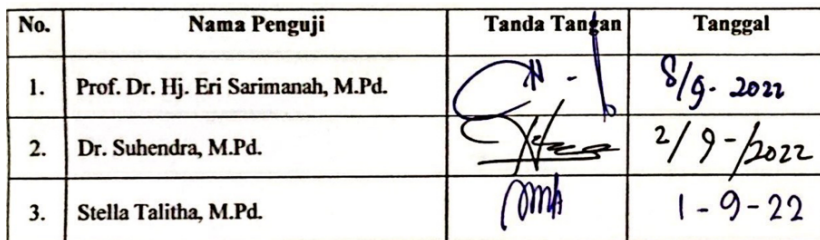 No. Nama Penguji Tanda Tangan Tanggal
1. Prof. Dr. Hj. Eri Sarimanah, M.Pd. 8/9. 2022
2. Dr. Suhendra, M.Pd. 2/9-/2022
3. Stella Talitha, M.Pd. 1-9-22